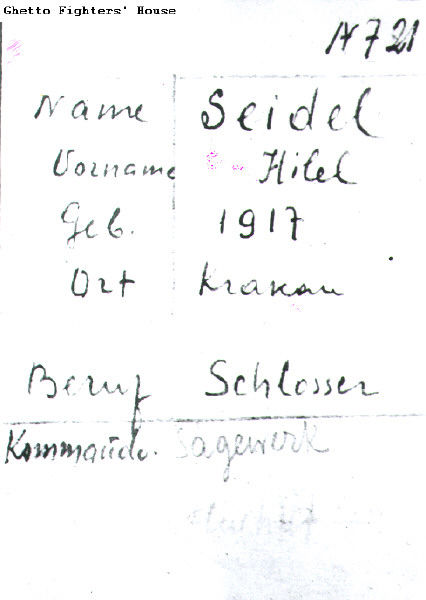 Ghetto Fighters' House
N 721
Name Seidel
Vorname Hilel
Geb. 1917
Ort Krakau
Beruf Schlosser
Kommando. Sagewerk